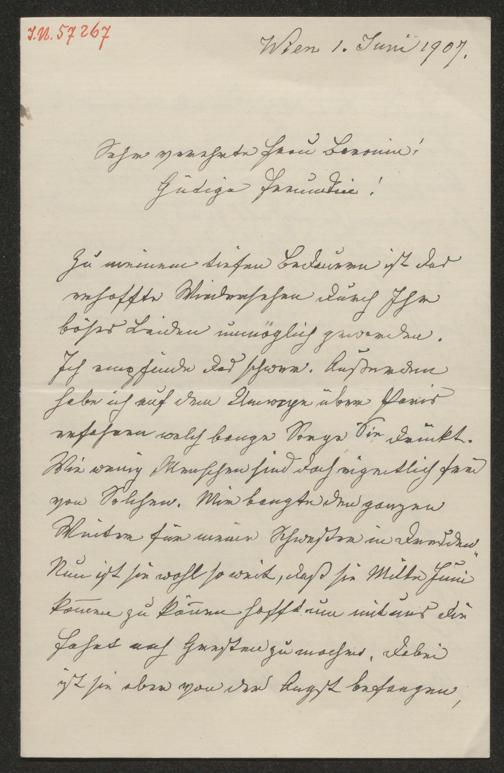 I.N. 57267
Wien 1. Juni 1907.
Sehr verehrte Frau Baronin!
Gütige Freundin!
Zu meinem tiefen Bedauern ist das
erhoffte Wiedersehen durch Ihr
böses Leiden unmöglich geworden.
Ich empfinde das schwer. Außerdem
habe ich auf dem Umwege über Paris
erfahren welch bange Sorge Sie drückt.
Wie wenig Menschen sind doch eigentlich frei
von Solchen. Mir bangte den ganzen
Winter für meine Schwester in Dresden.
Nun ist sie wohl so weit, daß sie Mitte Juni
kommen zu können hofft um mit uns die
Fahrt nach zu machen. Dabei
ist sie aber von der Angst befangen,